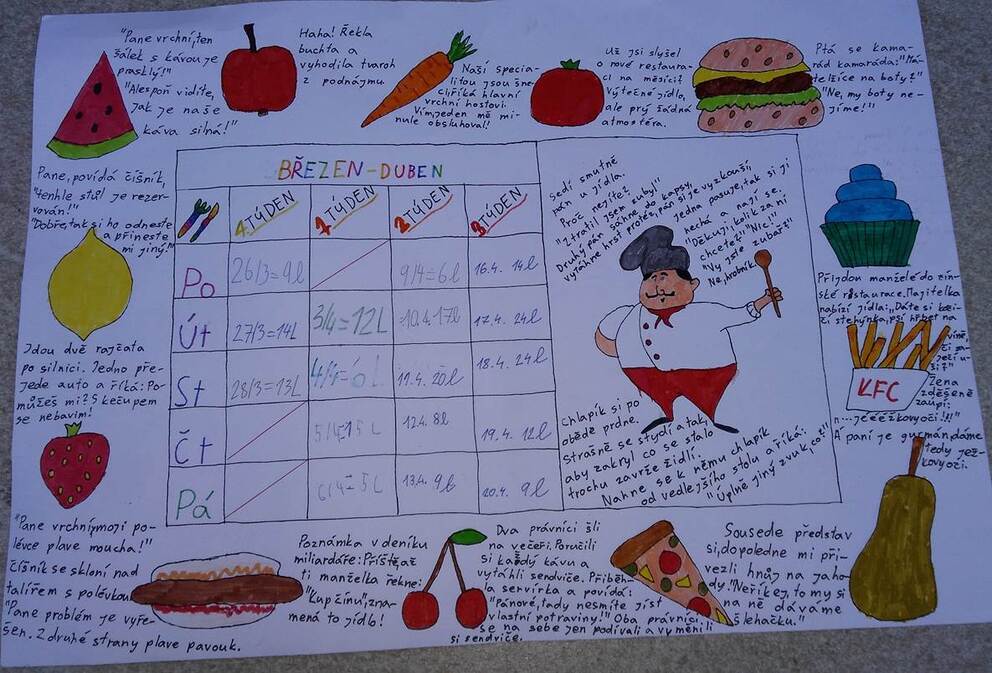 "Pane vrchní, ten
šálek s kávou je
prasklý!"
"Alespoň vidíte,
jak je naše
káva silná!"
Haha! Řekla
buchta a
vyhodila tvaroh
z podnájmu.
Naší specia-
litou jsou šne-
ci, říká hlavní
vrchní hostovi.
Vím, jeden mě mi-
nule obsluhoval!
Už jsi slyšel
o nové restaura-
ci na měsíci?
Výtečné jídlo,
ale prý žádná
atmosféra.
Ptá se kama-
rád kamaráda: "Má-
te lžíce na boty?"
"Ne, my boty ne-
jíme!"
Pane, povídá číšník,
"tenhle stůl je rezer-
vován!"
"Dobře, tak si ho odneste
a přineste
mi jiný."
BŘEZEN-DUBEN
TÝDEN
1. TÝDEN
2. TÝDEN
3. TÝDEN
Po
26/3=9l
9/4=6l
16.4. 14l
Út
27/3=14L
3/4=12L
10.4. 17l
17.4. 24l
St
28/3=13L
4/4=6L
11.4. 20l
18.4. 24l
Čt
5/4=15L
12.4. 8l
19.4. 12l
Pá
6/4=5L
13.4. 9l
20.4. 9l
Sedí smutně
pán u jídla.
"Proč nejíte?"
"Ztratil jsem zuby!"
Druhý pán sáhne do kapsy,
vytáhne hrst protéz, pán si je vyzkouší,
jedna pasuje, tak si ji
nechá a nají se.
"Děkuji, kolik za ni
chcete?" "Nic!"
"Vy jste zubař?"
Ne, hrobník.
Chlapík si po
obědě prdne.
Strašně se stydí a tak,
aby zakryl co se stalo
trochu zavrže židlí.
Nahne se k němu chlapík
od vedlejšího stolu a říká:
"Úplně jiný zvuk, co?"
Přijdou manželé do čín-
ské restaurace. Majitelka
nabízí jídla: "Dáte si koči-
čí stehýnka, psí hřbet na
víně,
KFC
Žena
zděšeně
zaúpí:
n...jééééžkovy oči!!!"
A paní je gurmán, dáme
tedy jež-
kovy oči.
Jdou dvě rajčata
po silnici. Jedno pře-
jede auto a říká: Po-
můžeš mi? S kečupem
se nebavím!
"Pane vrchní, v mojí po-
lévce plave moucha!"
Číšník se skloní nad
talířem s polévkou
"Pane problém je vyře-
šen. Z druhé strany plave pavouk.
Poznámka v deníku
miliardáře: Příště, až
ti manželka řekne:
"Kup čínu", zna-
mená to jídlo!
Dva právníci šli
na večeři. Poručili
si každý kávu a
vytáhli sendviče. Přiběh-
la servírka a povídá:
"Pánové, tady nesmíte jíst
vlastní potraviny!" Oba právníci
se na sebe jen podívali a vyměnili
si sendviče.
Sousede představ
si, dopoledne mi při-
vezli hnůj na jaho-
dy. "Neříkej, to my si
na ně dáváme
šlehačku."